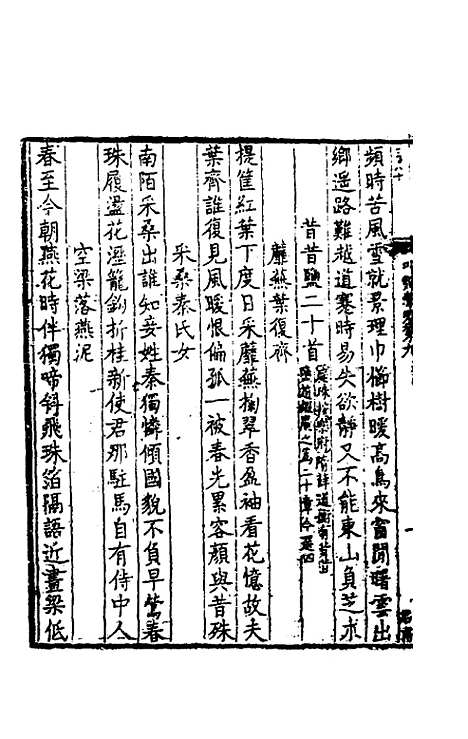 頻時苦風雪就景理巾櫛樹暖高鳥來窗閒曙雲出
鄉遥路難越道蹇時易失欲靜又不能東山負芝朮
昔昔鹽二十首
蘼蕪葉復齊
提筐紅葉下度日采蘼蕪掬翠香盈袖看花憶故夫
葉齊誰復見風暖恨偏孤一被春光累容顏與昔殊
采桑秦氏女
南陌采桑出誰知妾姓秦獨憐傾國貌不負早鶯春
珠履盪花溼籠鈎折桂新使君那駐馬自有侍中人
空梁落燕泥
春至今朝燕花時伴獨啼銜飛珠箔隔語近畫梁低